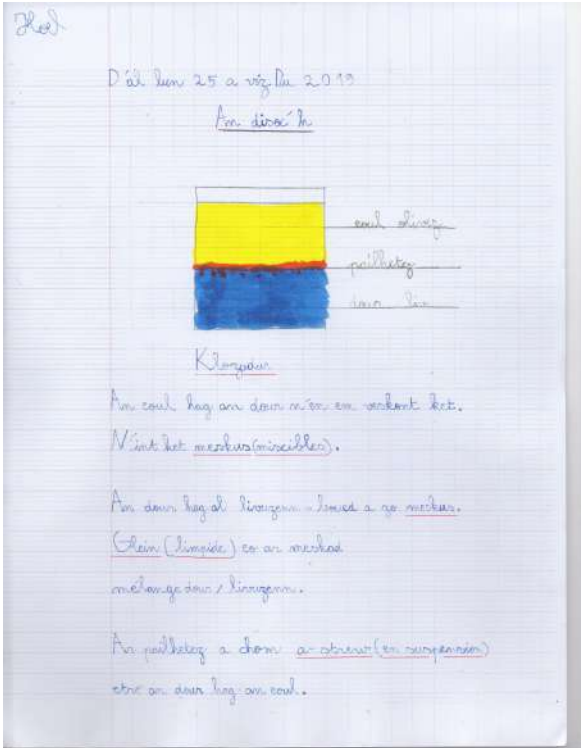 D'al lun 25 a viz Du 2019
An disoc'h
eoul olivez
pailhetez
dour liv
Klozadur
An eoul hag an dour n'en em veskont ket.
N'int ket meskus (miscibles).
An dour hag al livuzenn-boued a zo meskus.
Glein (limpide) eo ar meskad
mélange dour / livuzenn.
Ar pailhetez a chom a-strew (en suspension)
etre an dour hag an eoul.